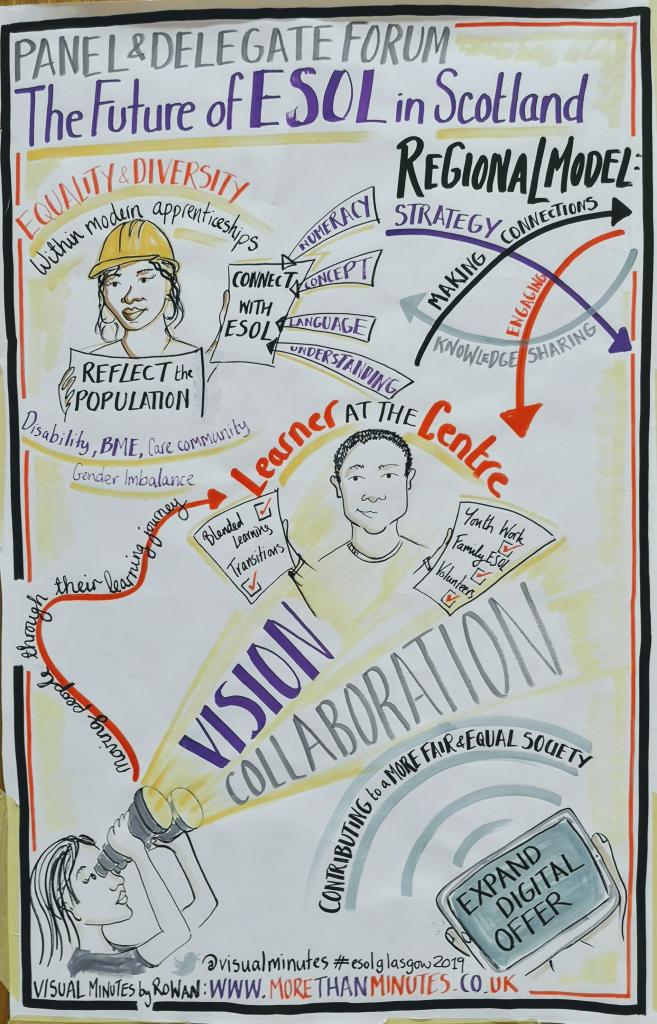 PANEL & DELEGATE FORUM
The Future of ESOL in Scotland
EQUALITY & DIVERSITY
Within modern apprenticeships
REFLECT the
POPULATION
CONNECT
WITH
ESOL
NUMERACY
CONCEPT
LANGUAGE
UNDERSTANDING
Disability, BME, Care community
Gender Imbalance
REGIONAL MODEL:
STRATEGY
MAKING CONNECTIONS
ENGAGING
KNOWLEDGE SHARING
Learner AT THE Centre
Blended
Learning
Transitions
Youth Work
Family ESOL
Volunteers
moving people through their learning journey
VISION
COLLABORATION
CONTRIBUTING to a MORE FAIR & EQUAL SOCIETY
EXPAND
DIGITAL
OFFER
@visualminutes #esolglasgow2019
VISUAL MINUTES by ROWAN: WWW.MORETHANMINUTES.CO.UK